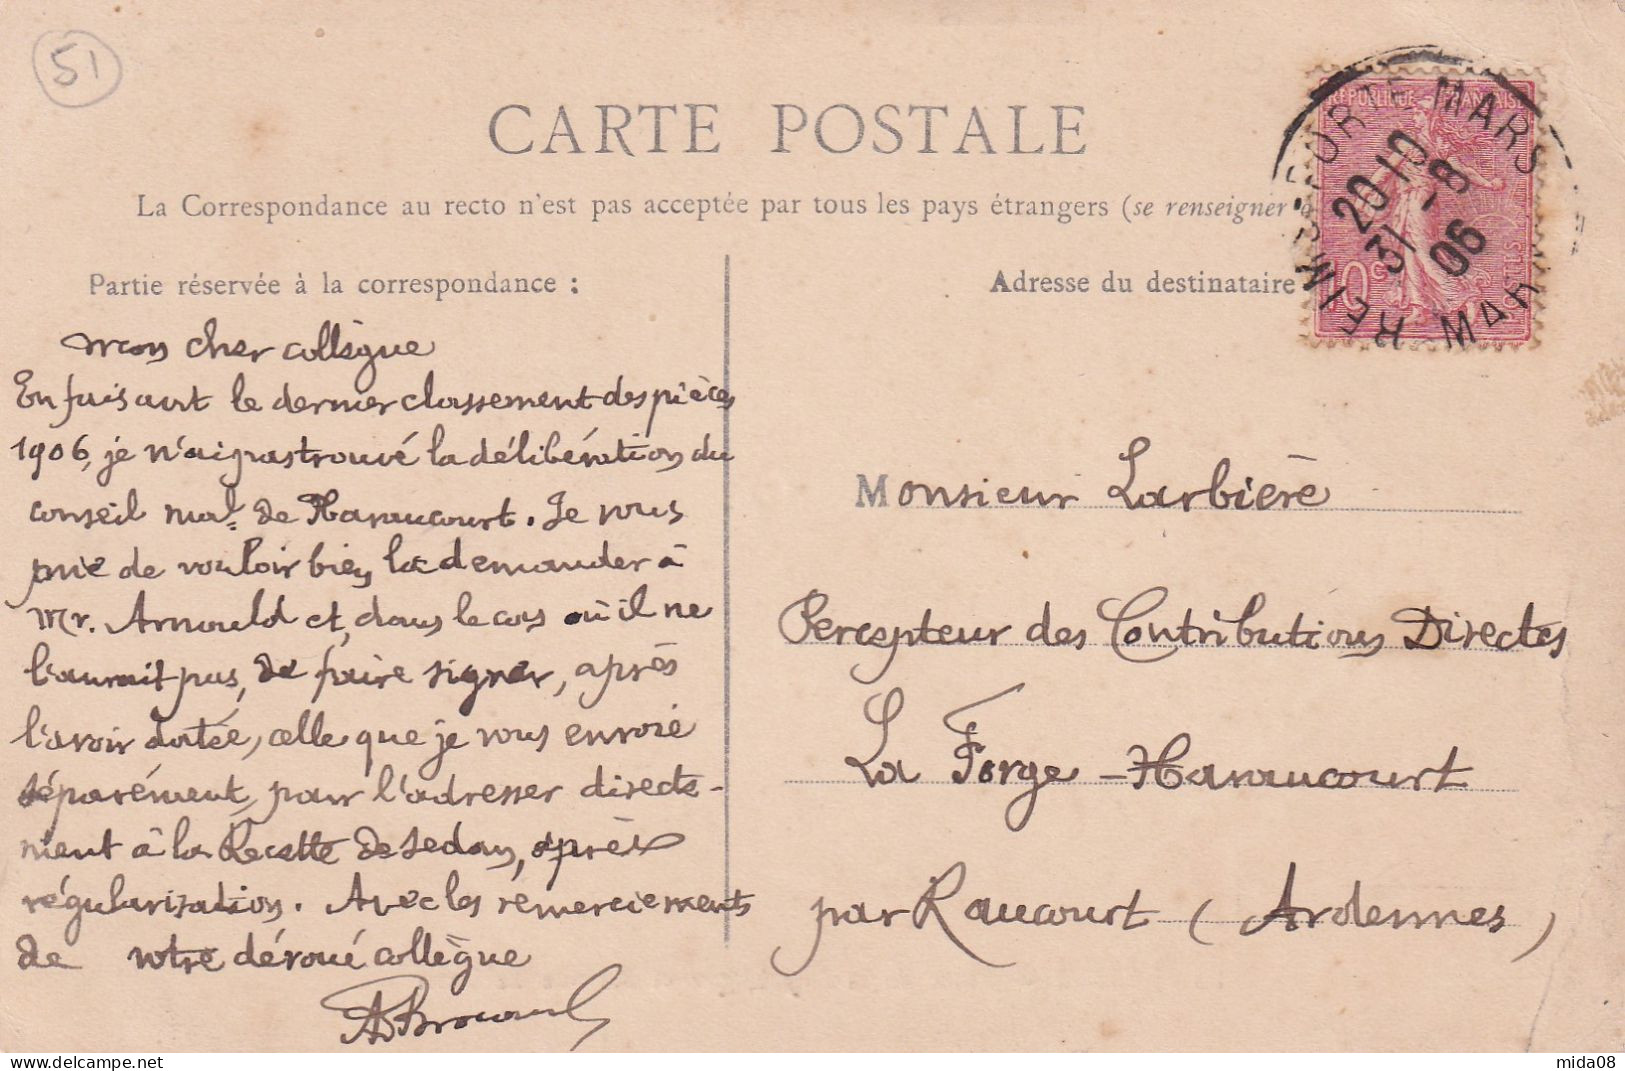 51
CARTE POSTALE
La Correspondance au recto n'est pas acceptée par tous les pays étrangers (se renseigner
Partie réservée à la correspondance :
mon cher collègue
En faisant le dernier classement des pièces
1906, je n'ai pas trouvé la délibération du
conseil mal. de Haraucourt. Je vous
prie de vouloir bien la demander à
Mr. Arnould et, dans le cas où il ne
l'aurait pas, de faire signer, après
l'avoir datée, celle que je vous envoie
séparément, pour l'adresser directe-
ment à la Recette de Sedan, après
régularisation. Avec les remerciements
de votre dévoué collègue
Adresse du destinataire
REPUBLIQUE FRANÇAISE
10c POSTES
REIMS PORTE MARS
MARNE
20 10
31 -8
06
Monsieur Larbière
Percepteur des Contributions Directes
La Forge - Haraucourt
par Raucourt (Ardennes)
mida08